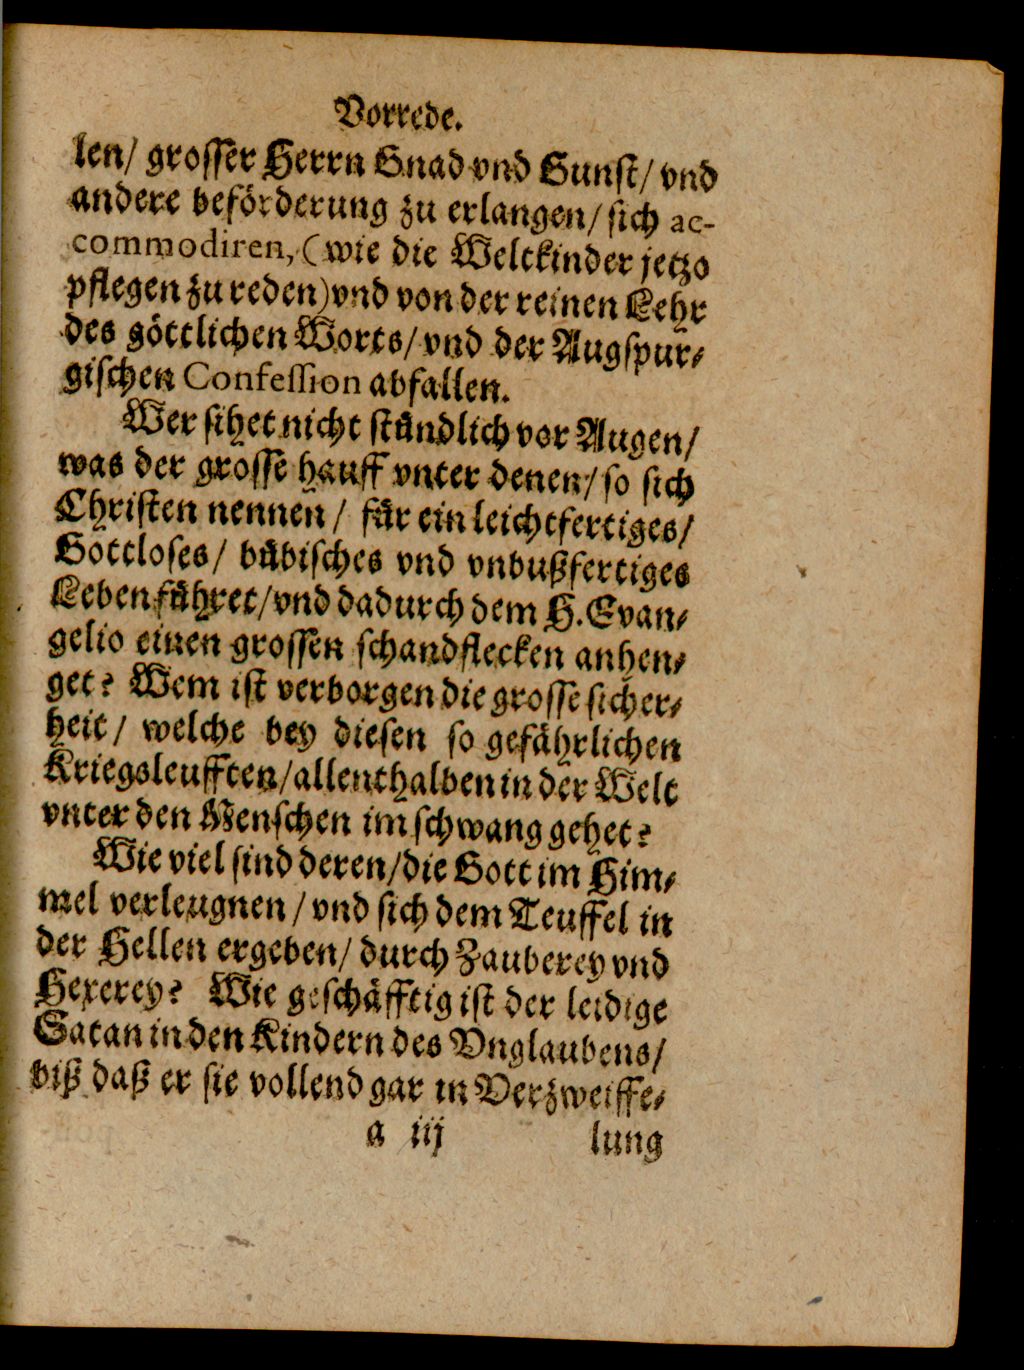 Vorrede.
len/ grosser Herrn Gnad vnd Gunst/ vnd
andere beförderung zu erlangen/ sich ac-
commodiren, (wie die Weltkinder jetzo
pflegen zu reden) vnd von der reinen Lehr
des göttlichen Worts/ vnd der Augspur-
gischen Confession abfallen.
Wer sihet nicht stündlich vor Augen/
was der grosse hauff vnter denen/ so sich
Christen nennen/ für ein leichtfertiges/
Gottloses/ bübisches vnd vnbußfertiges
Leben führet/ vnd dadurch dem H. Evan-
gelio einen grossen schandflecken anhen-
get? Wem ist verborgen die grosse sicher-
heit/ welche bey diesen so gefährlichen
Kriegsleufften/ allenthalben in der Welt
vnter den Menschen im schwang gehet?
Wie viel sind deren/ die Gott im Him-
mel verleugnen/ vnd sich dem Teuffel in
der Hellen ergeben/ durch Zauberey vnd
Hexerey? Wie geschäfftig ist der leidige
Satan in den Kindern des Vnglaubens/
biß daß er sie vollend gar in Verzweiffe-
a iij lung